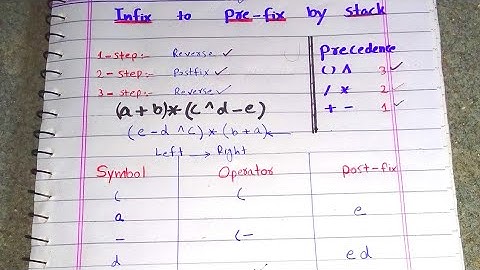 Infix to Pre-fix by stack
1-step:- Reverse ✓
2-step:- Postfix ✓
3-step:- Reverse ✓
Precedence
( ) ^ 3 ✓
/ * 2 ✓
+ - 1 ✓
(a+b)*(c^d-e)
(e-d^c)*(b+a)
Left → Right
Symbol Operator Post-fix
( (
a e
- (-
d ed